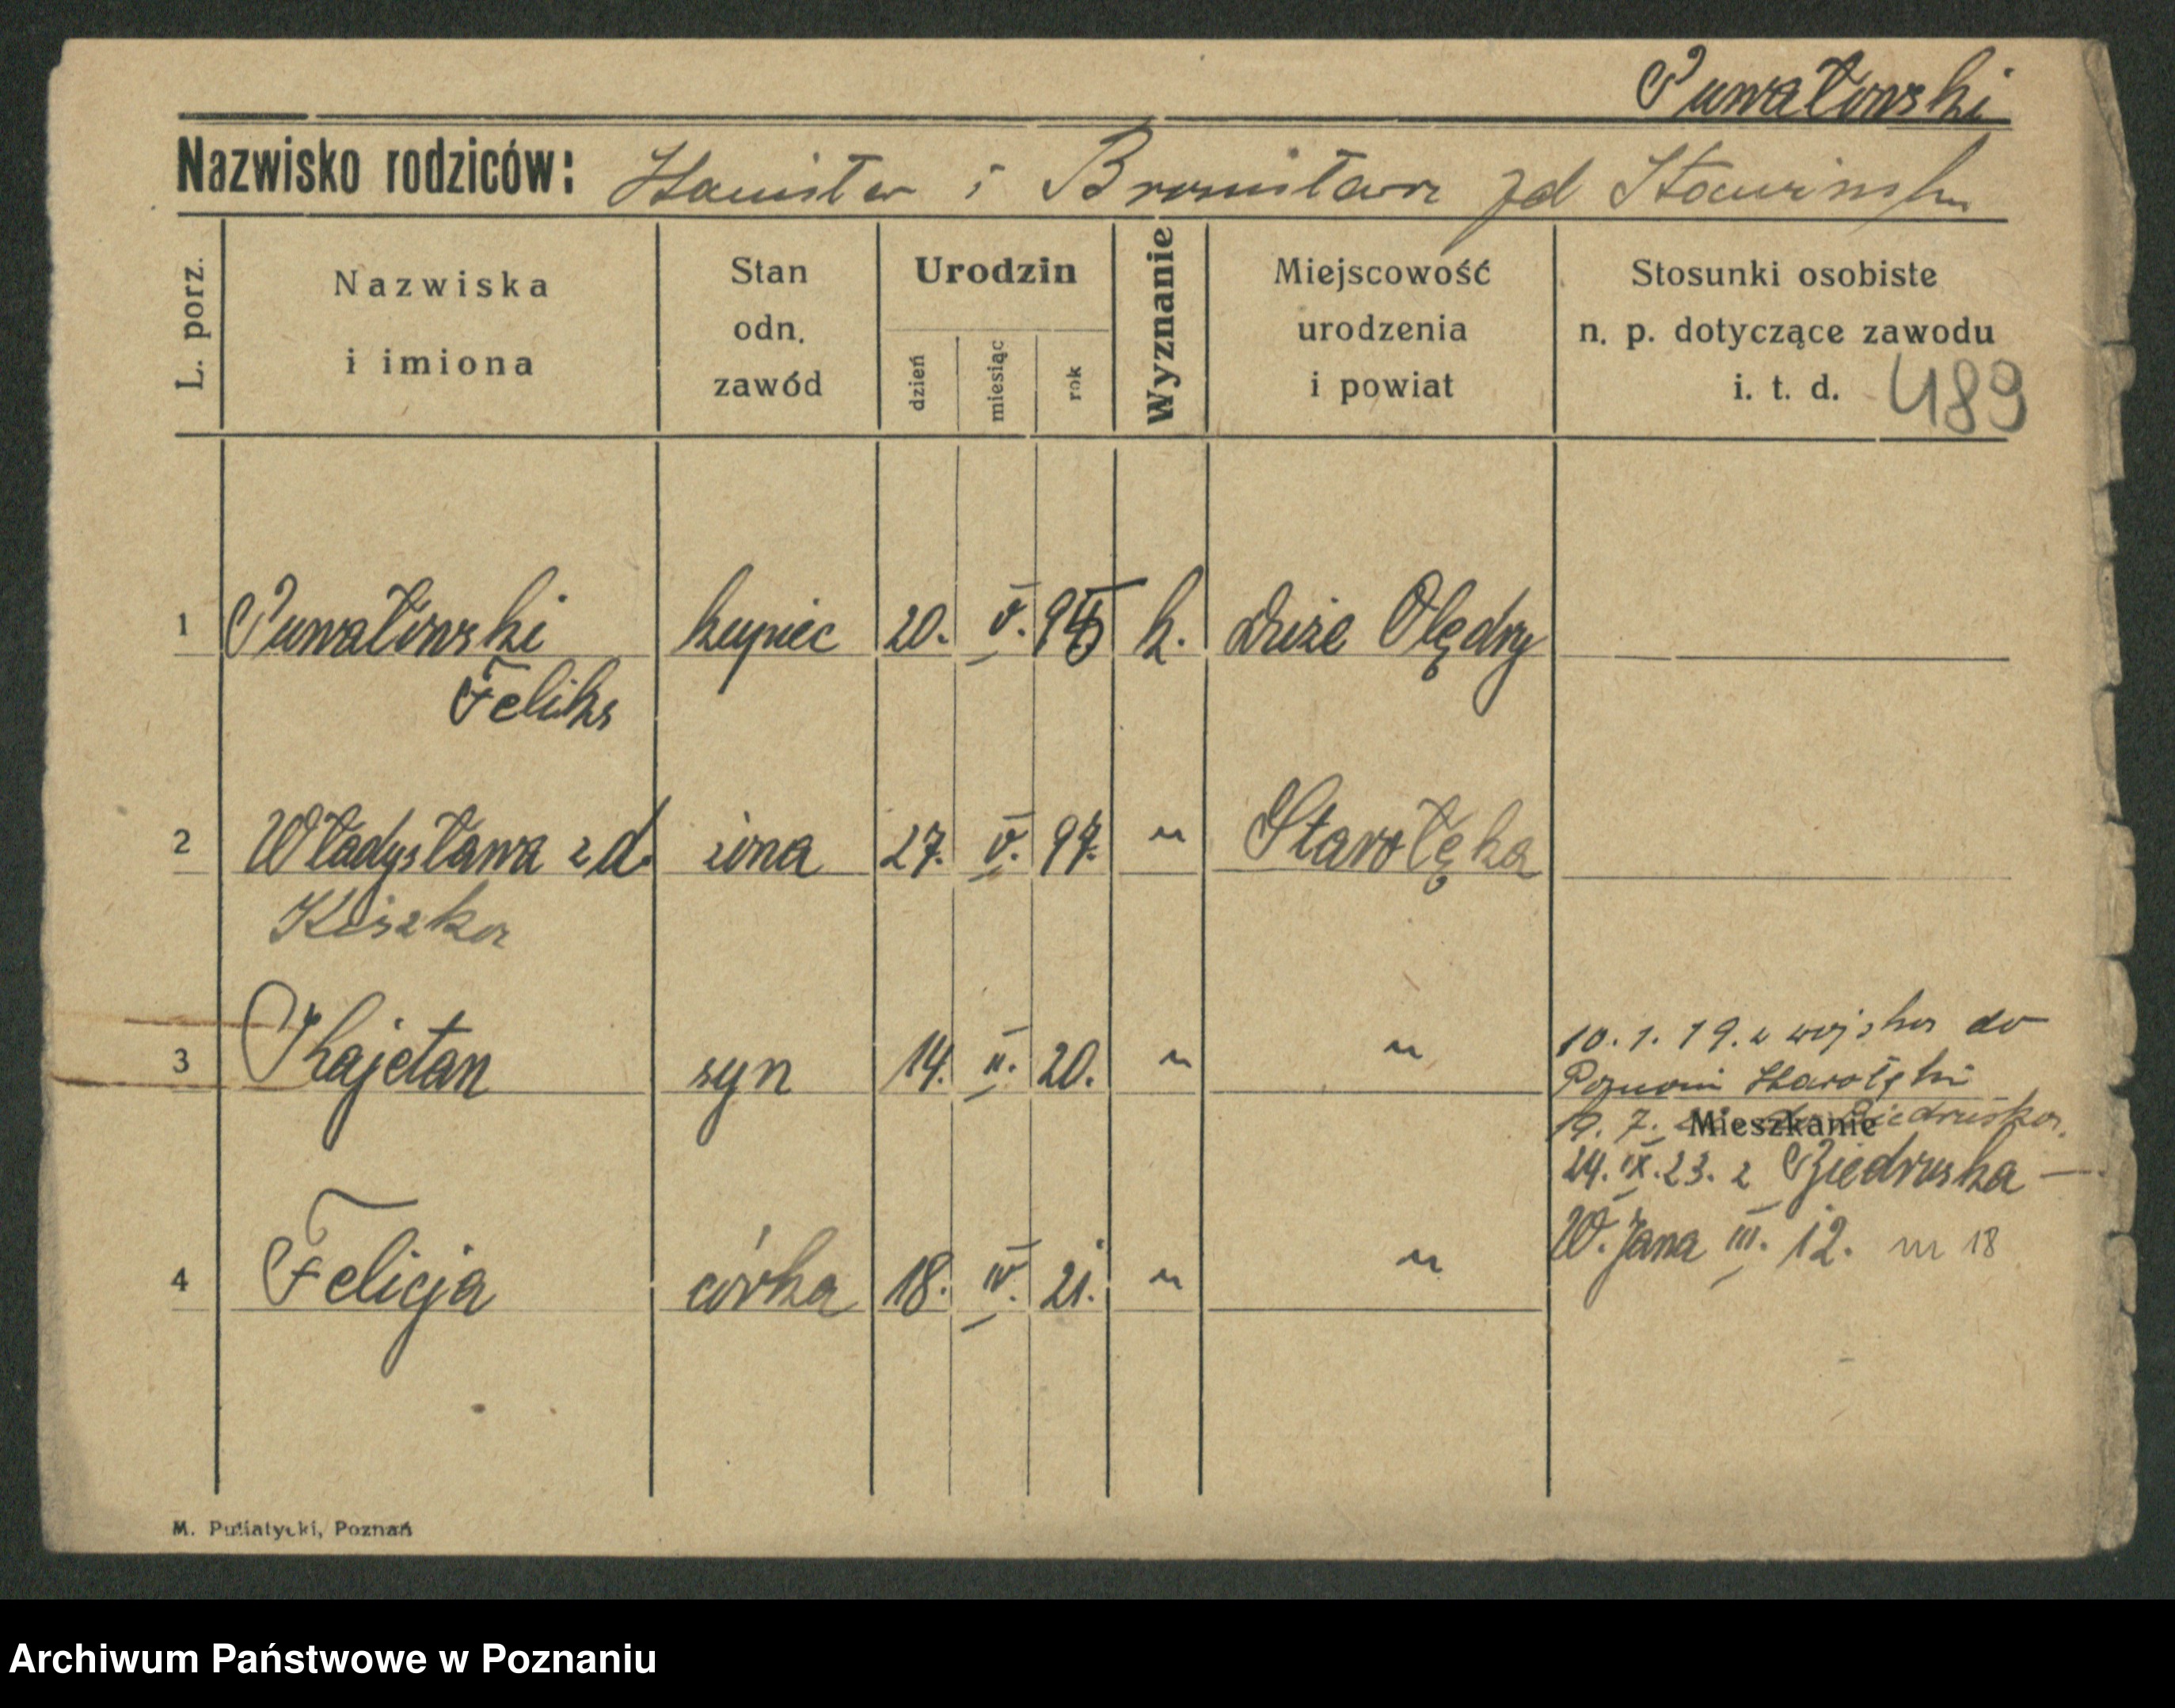 Puwałowski
Nazwisko rodziców: Stanisław i Bronisława zd Sławińska
L. porz.
Nazwiska i imiona
Stan odn. zawód
Urodzin
dzień miesiąc rok
Wyznanie
Miejscowość urodzenia i powiat
Stosunki osobiste n. p. dotyczące zawodu i. t. d.
489
1 Puwałowski kupiec 20. V. 95 k. Duże Olędry
Feliks
2 Władysława zd. żona 27. V. 97. " Starołęka
Kiszka
3 Kajetan syn 14. II. 20. " " 10.1.19. z wojska do
Poznani Starołęki
Mieszkanie
19. 7. Biedrusko.
24. IX. 23. z Biedruska —
W. Jana III. 12. m 18
4 Felicja córka 18. IV. 21. " "
M. Putiatycki, Poznań
Archiwum Państwowe w Poznaniu